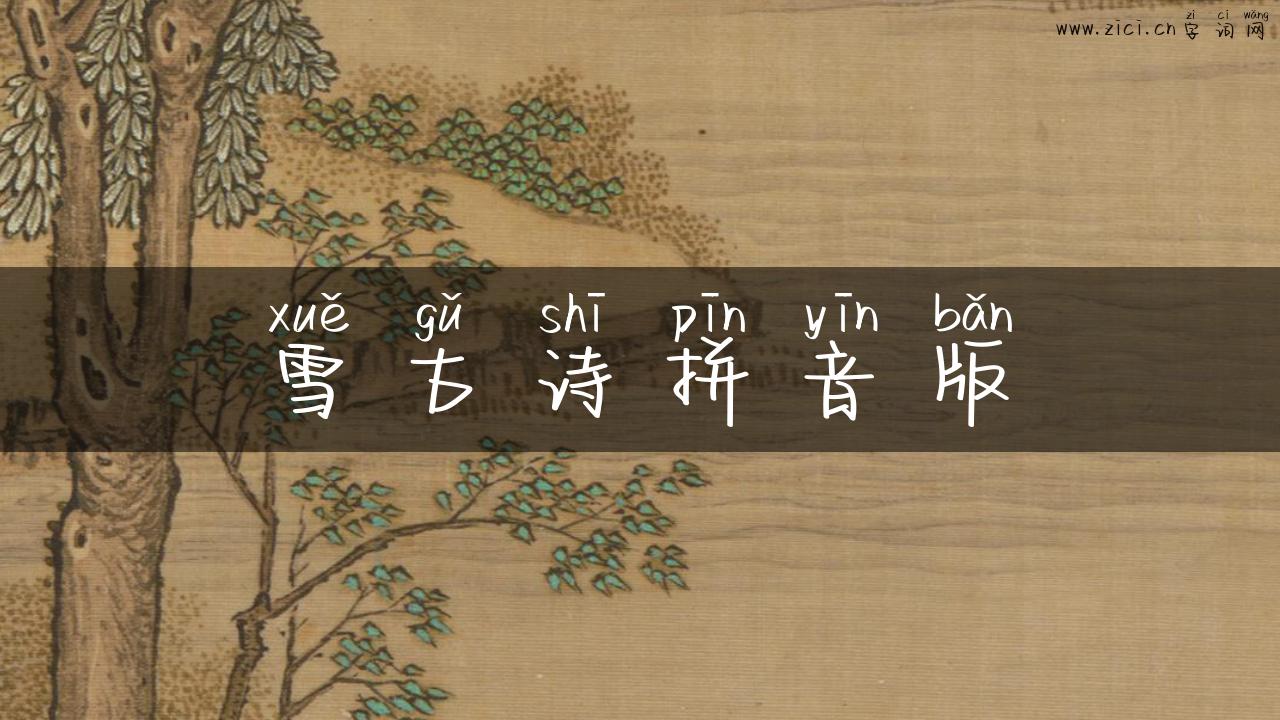 zì cí wǎng
www.zici.cn 字词网
xuě gǔ shī pīn yīn bǎn
雪古诗拼音版